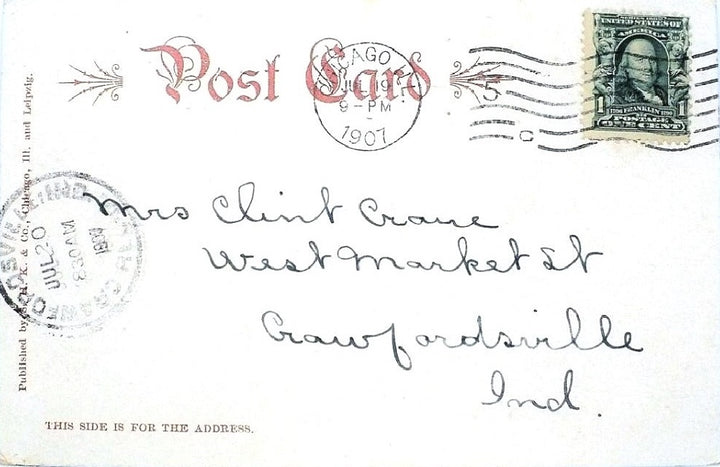 Post Card
CHICAGO, ILL.
JUL 19
9-PM
1907
5
C
SERIES 1902
UNITED STATES OF
AMERICA
1
1
FRANKLIN
POSTAGE
ONE CENT
Mrs Clint Crane
West Market St
Crawfordsville
Ind.
CRAWFORDSVILLE, IND.
JUL 20
830AM
1907
Published by S. H. K. & Co., Chicago, Ill. and Leipzig.
THIS SIDE IS FOR THE ADDRESS.